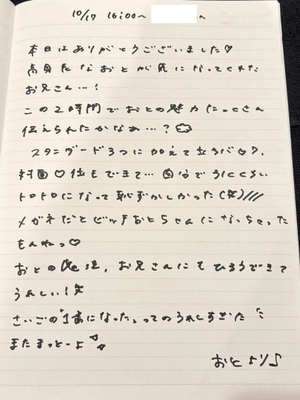 10/17 16:00〜 へ
本日はありがとうございました♡
高身長なおとが気になってくれた
お兄さん…!
この2時間でおとの魅力たっくさん
伝えられたかなぁ…?
スタンダード3つに加えて立ちバック、
対面♡位もできて…
トロトロになって恥ずかしかった(笑)///
メガネだとどМおとちゃんになっちゃったもんねっ♡
おとの 、お兄さんにもひろうできて
うれしい!笑
さいごの「 になった」ってのうれしすぎた
またまっとーよ
おとより♪